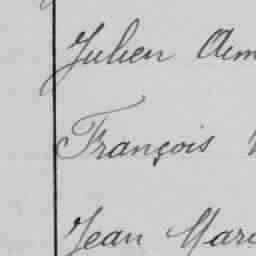 Julien Aim
François
Jean Mari